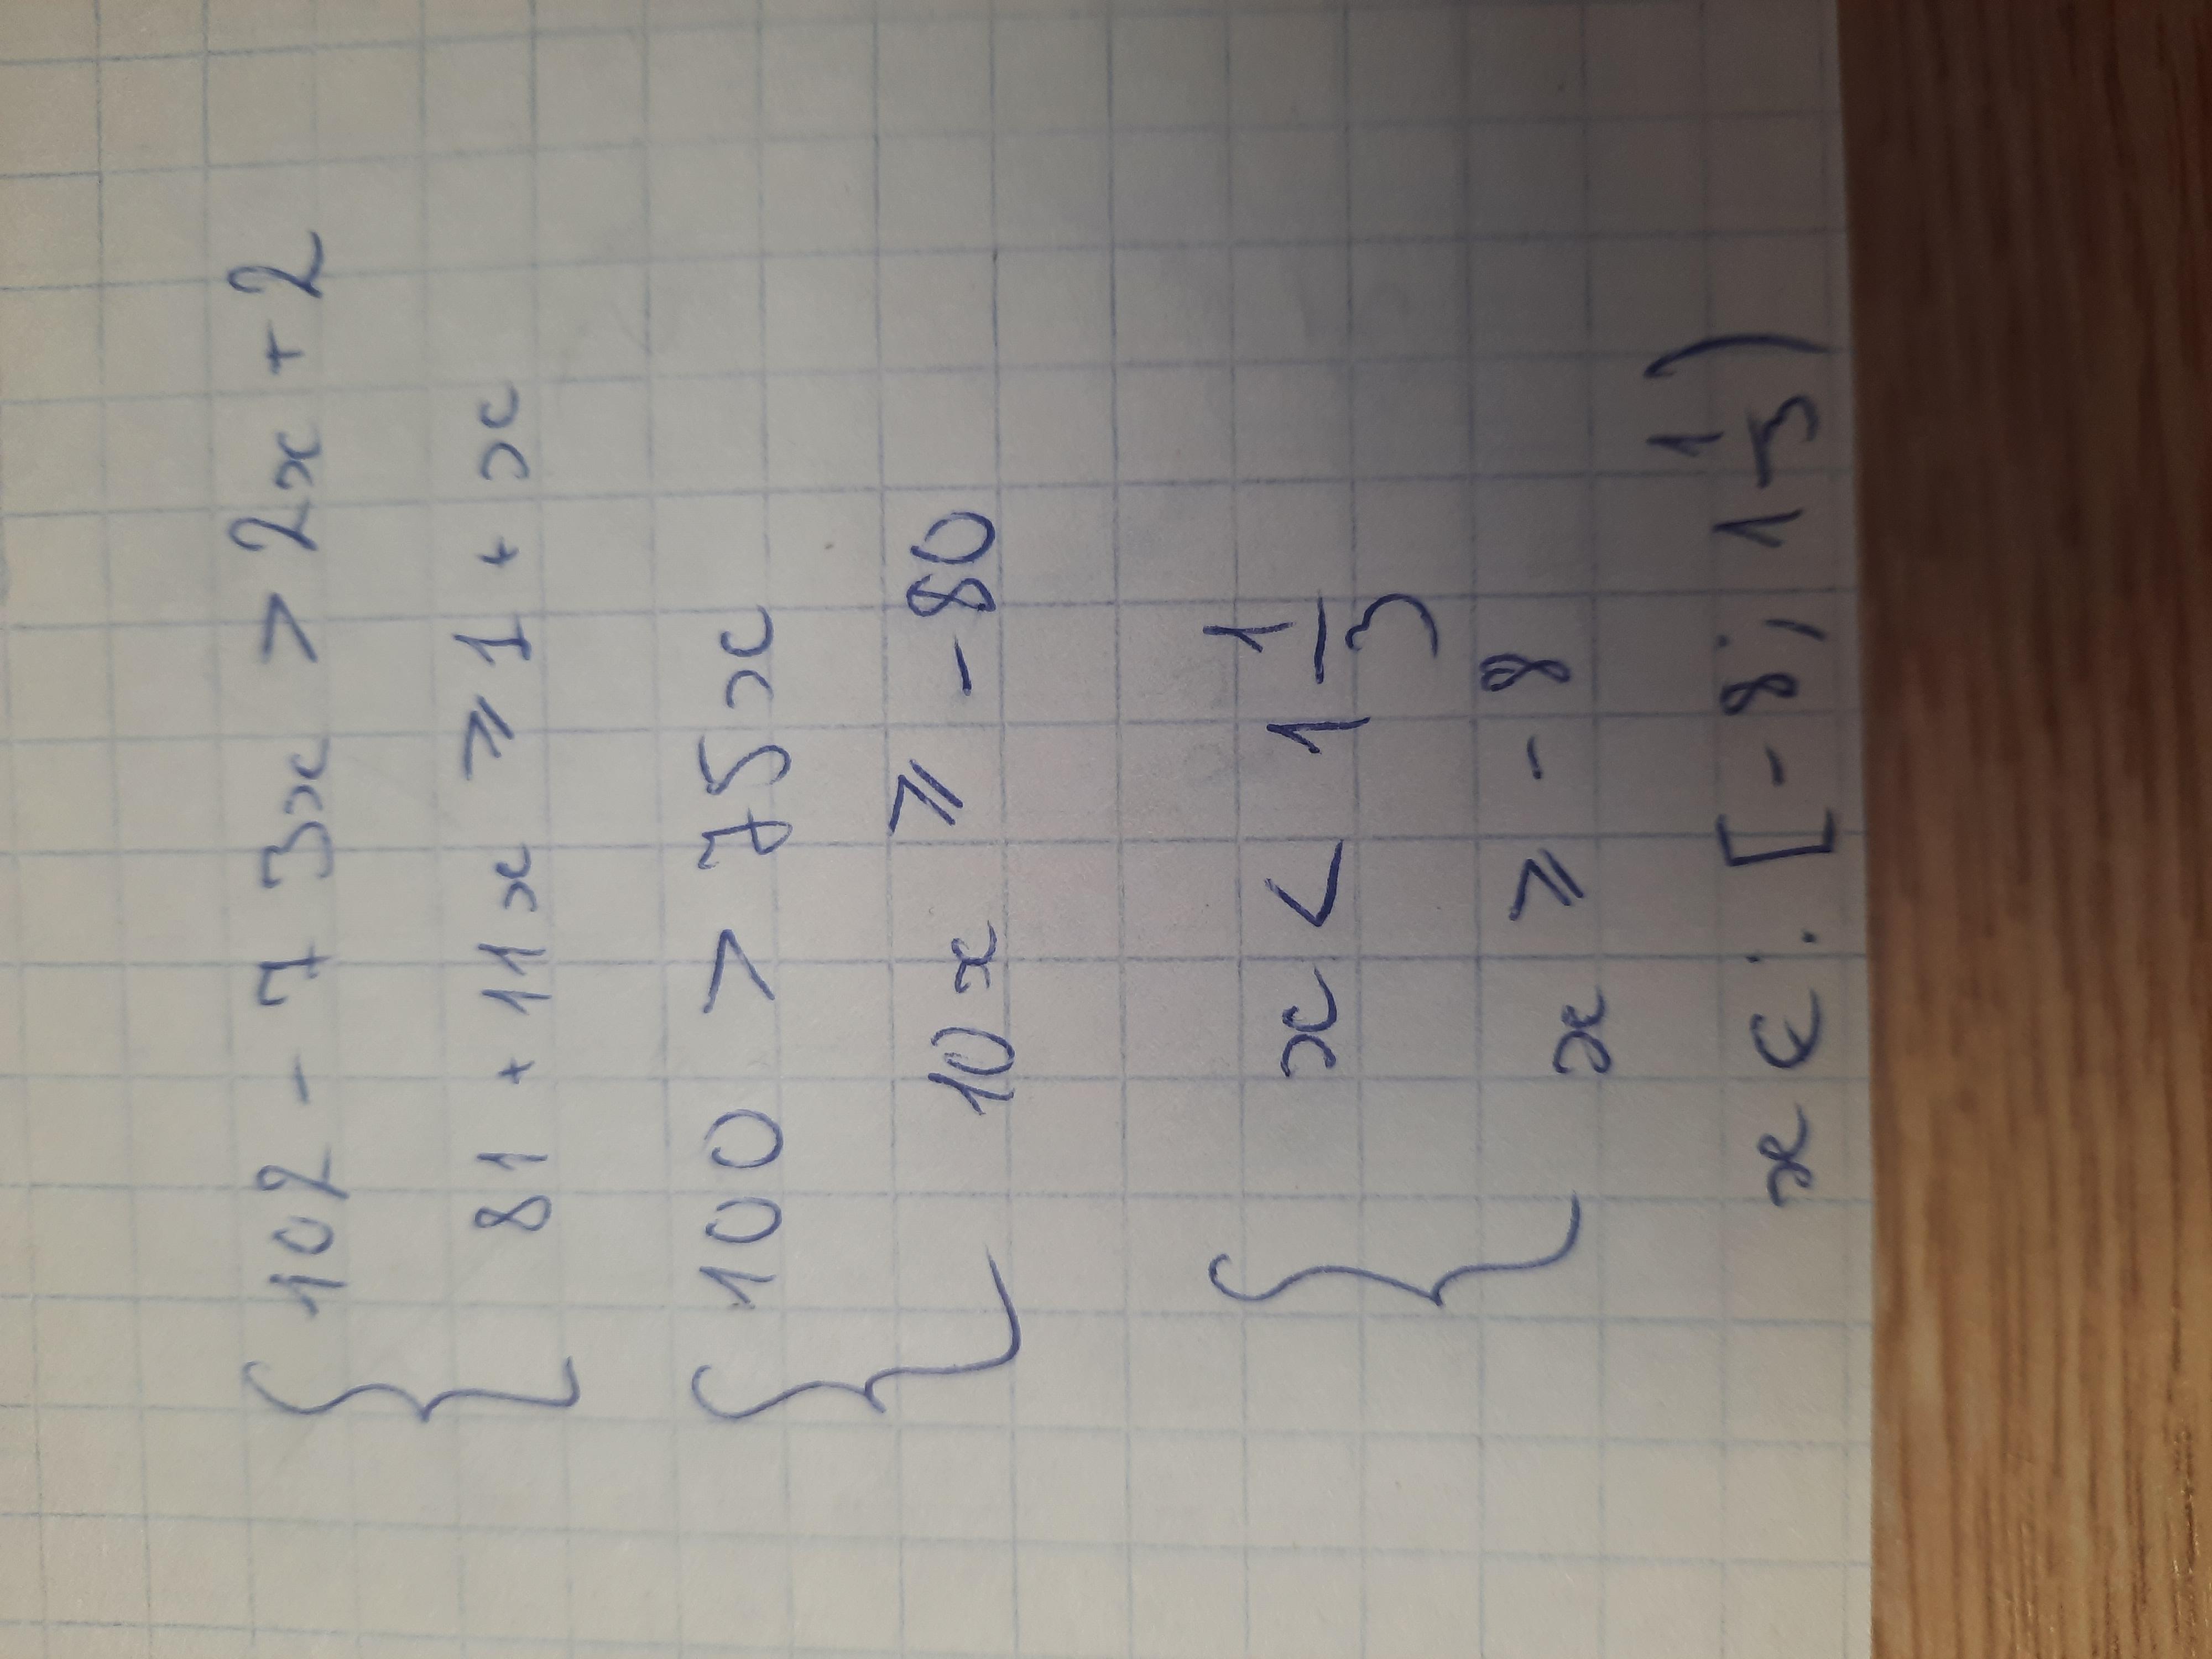 { 102 - 73x > 2x + 2
81 + 11x ⩾ 1 + x
{ 100 > 75x
10x ⩾ -80
{ x < 1 1/3
x ⩾ -8
x ∈: [-8; 1 1/3)